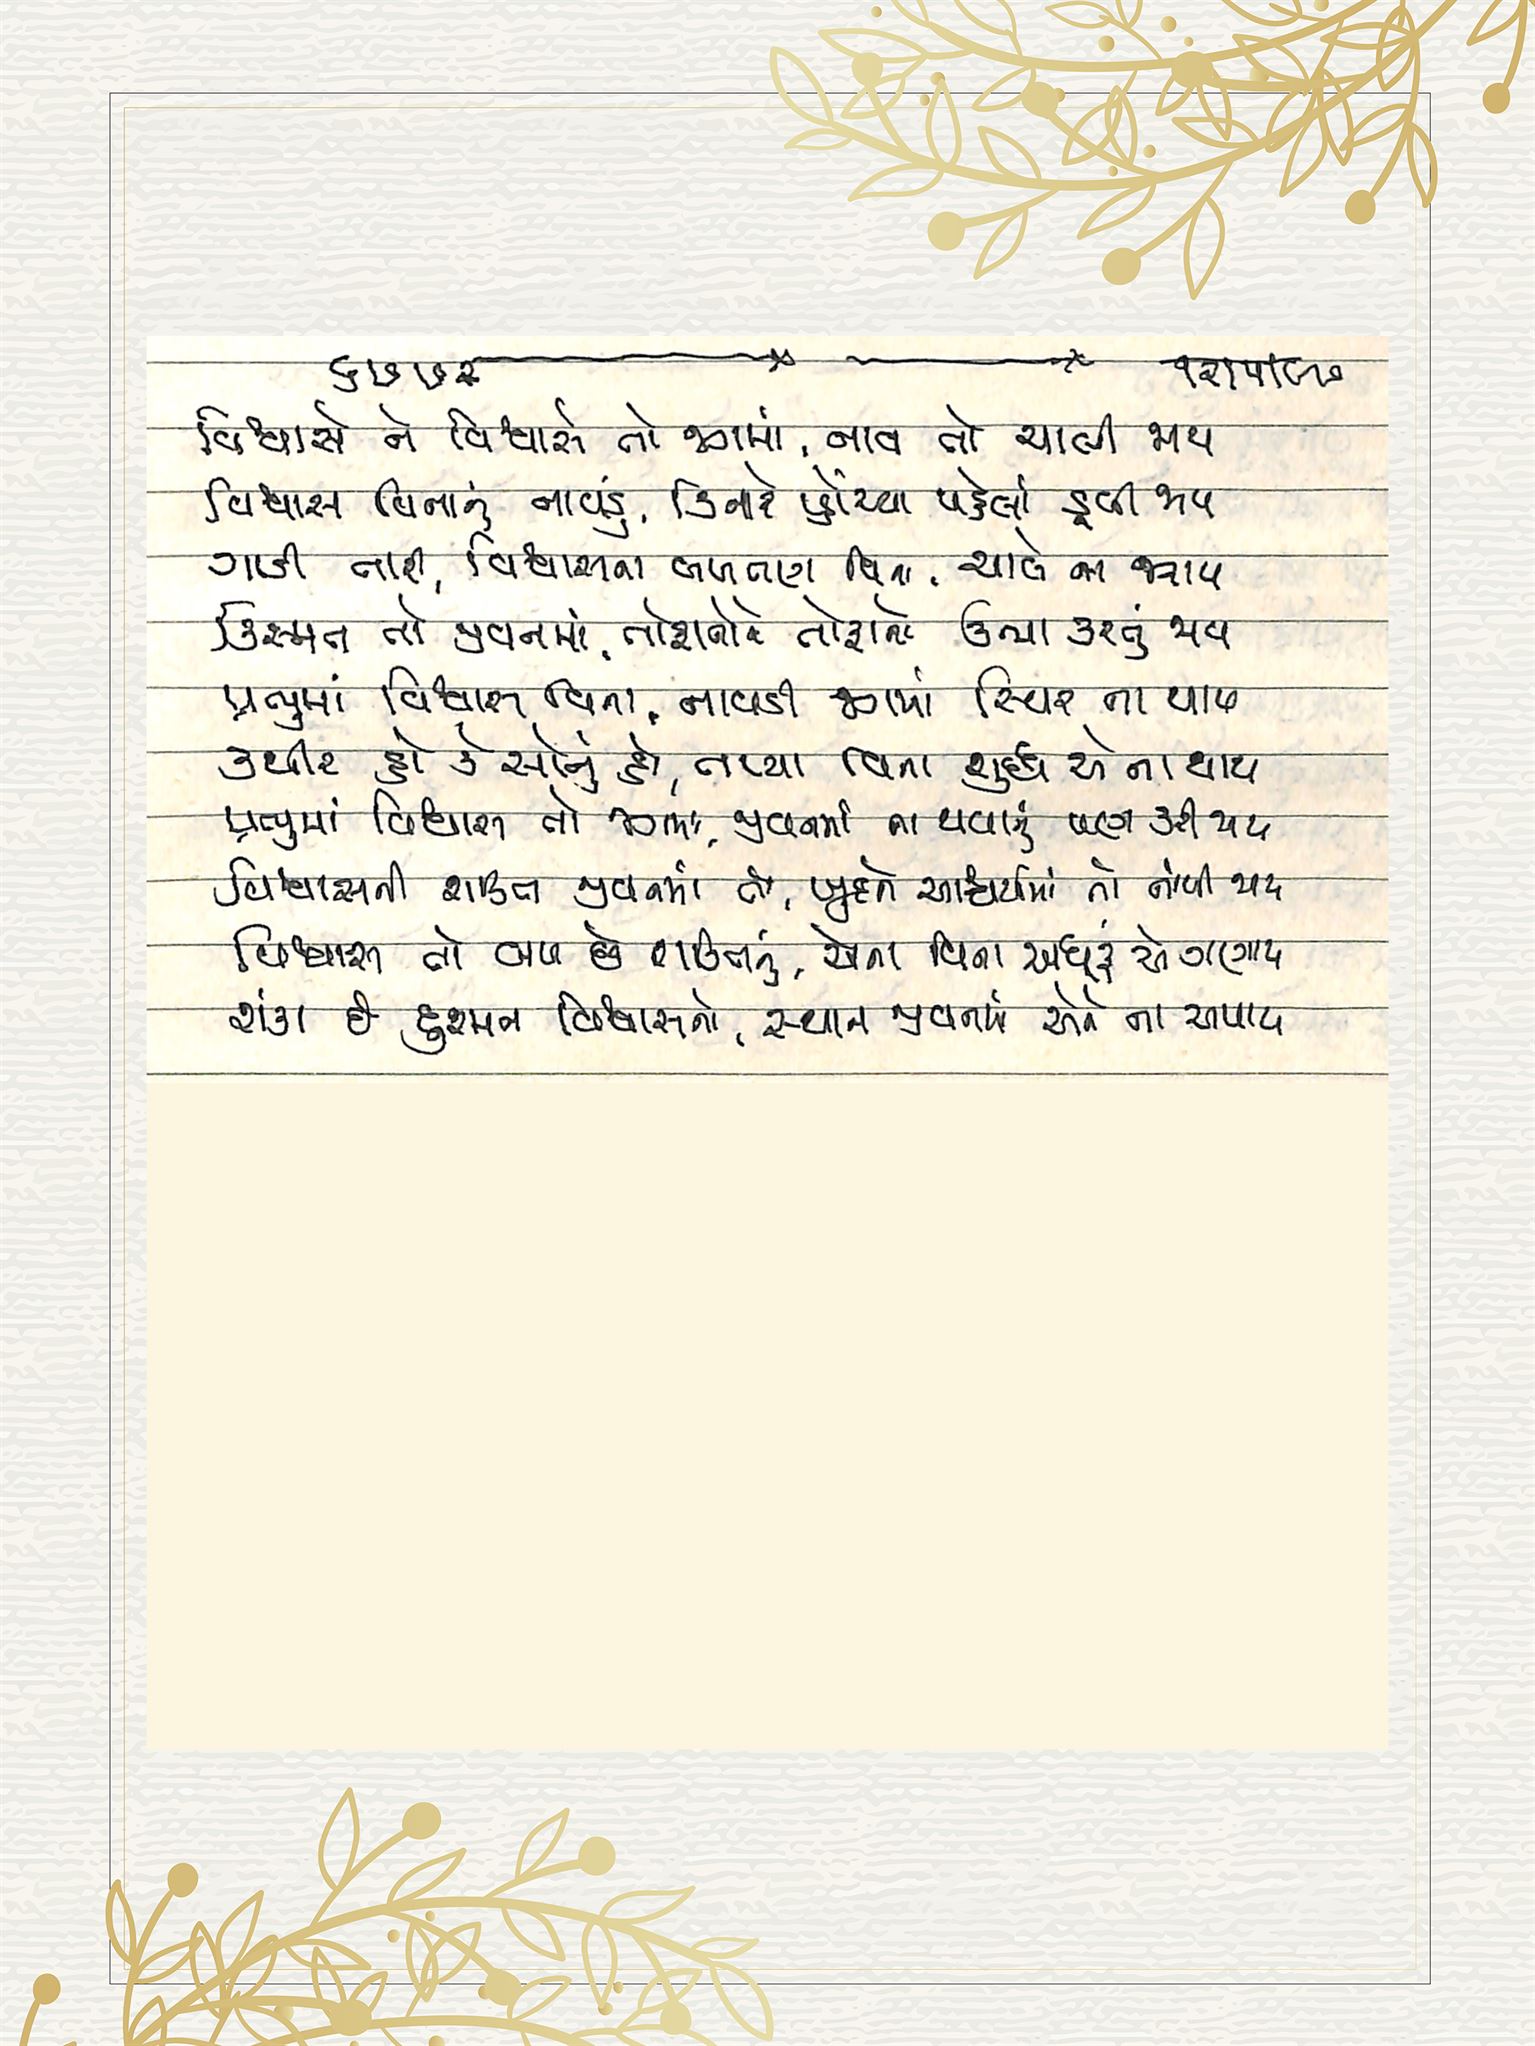 વિશ્વાસે ને વિશ્વાસે તો જગમાં, નાવ તો ચાલી જાય
વિશ્વાસ વિનાનું નાવડું, કિનારે પ્હોંચ્યા પહેલાં ડૂબી જાય
ગાડી તારી, વિશ્વાસના બળતણ વિના, ચાલે ના જરાય
કિસ્મત તો જીવનમાં, તોફાનો ઊભા કરતું જાય
પ્રભુમાં વિશ્વાસ વિના, નાવડી જગમાં સ્થિર ના થાય
કથીર હો કે સોનું હો, તપ્યા વિના શુદ્ધ એ ના થાય
પ્રભુમાં વિશ્વાસ તો જગમાં, જીવનમાં ના થવાનું પણ કરી જાય
વિશ્વાસની શક્તિ જીવનમાં તો, ખુદને આશ્ચર્યમાં તો નાંખી જાય
વિશ્વાસ તો બળ છે શક્તિનું, એના વિના અધૂરું એ ગણાય
શંકા છે દુશ્મન વિશ્વાસનો, સ્થાન જીવનમાં એને ના અપાય